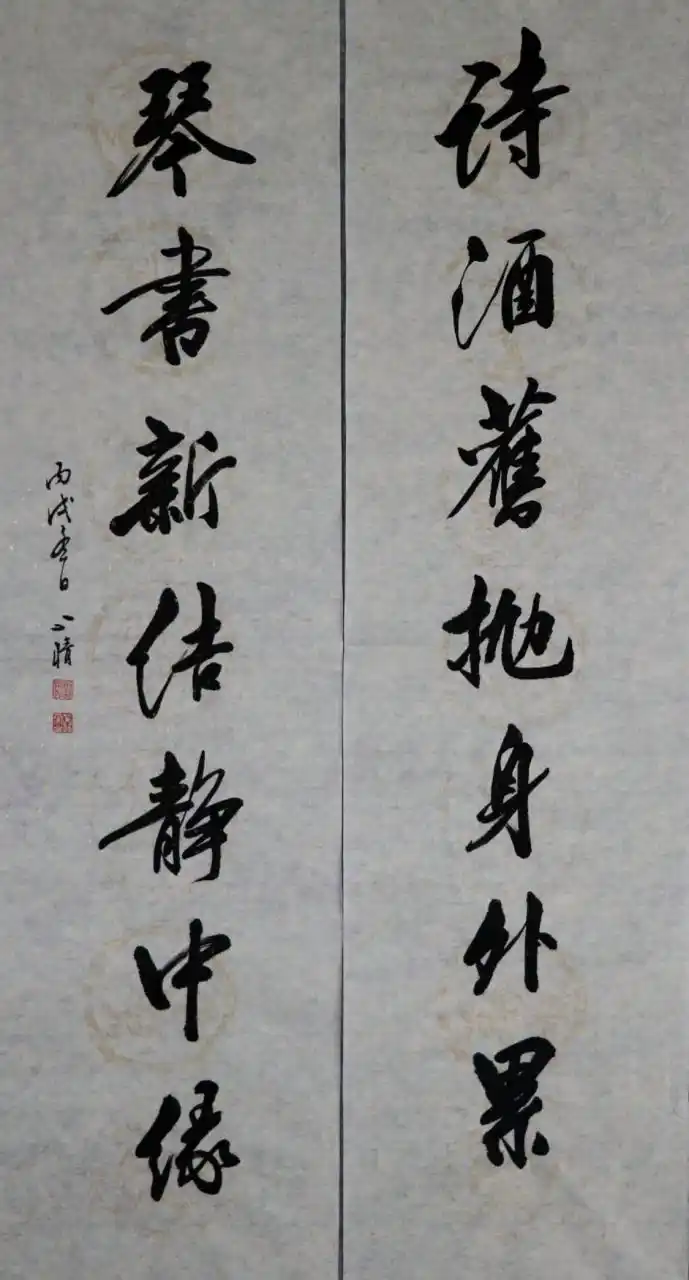 詩酒舊拋身外累
琴書新結靜中緣
丙戌冬日